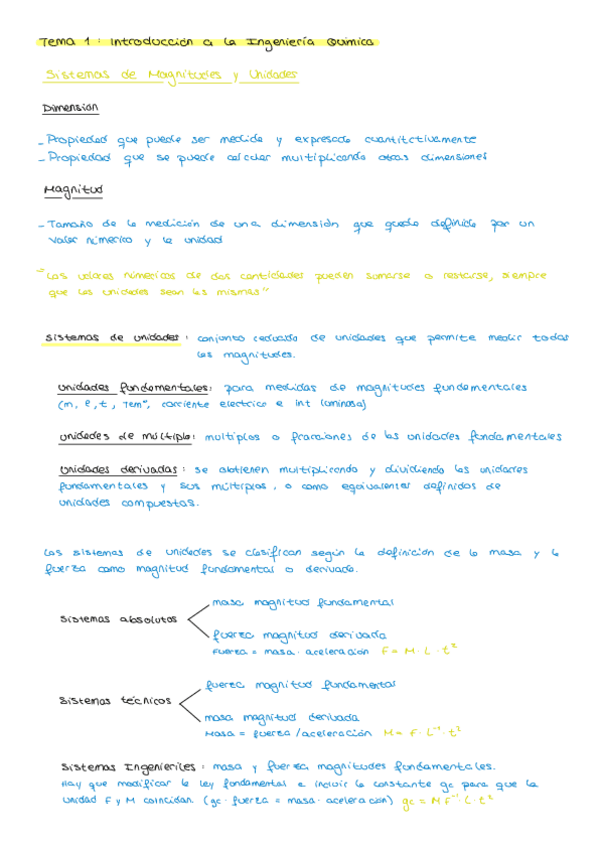 Tema 1: Introducción a la Ingeniería Química
Sistemas de Magnitudes y Unidades
Dimensión
- Propiedad que puede ser medida y expresada cuantitativamente
- Propiedad que se puede calcular multiplicando otras dimensiones
Magnitud
- Tamaño de la medición de una dimensión que queda definida por un
valor númerico y la unidad
"Los valores númericos de dos cantidades pueden sumarse o restarse, siempre
que las unidades sean las mismas"
Sistemas de unidades: conjunto reducido de unidades que permite medir todas
las magnitudes.
Unidades fundamentales: para medidas de magnitudes fundamentales
(m, l, t, Temª, corriente electrica e int luminosa)
Unidades de múltiplo: multiplos o fracciones de las unidades fundamentales
Unidades derivadas: se obtienen multiplicando y dividiendo las unidades
fundamentales y sus múltiplos, o como equivalentes definidos de
unidades compuestas.
Los sistemas de unidades se clasifican según la definición de la masa y la
fuerza como magnitud fundamental o derivada.
masa magnitud fundamental
Sistemas absolutos
fuerza magnitud derivada
Fuerza = masa · aceleración F = M · L · t²
fuerza magnitud fundamental
Sistemas técnicos
masa magnitud derivada
Masa = fuerza / aceleración M = F · L⁻¹ · t²
Sistemas Ingenieriles: masa y fuerza magnitudes fundamentales.
Hay que modificar la ley fundamental e incluir la constante gc para que la
unidad F y M coincidan. (gc · fuerza = masa · aceleración) gc = M F⁻¹ · L · t²